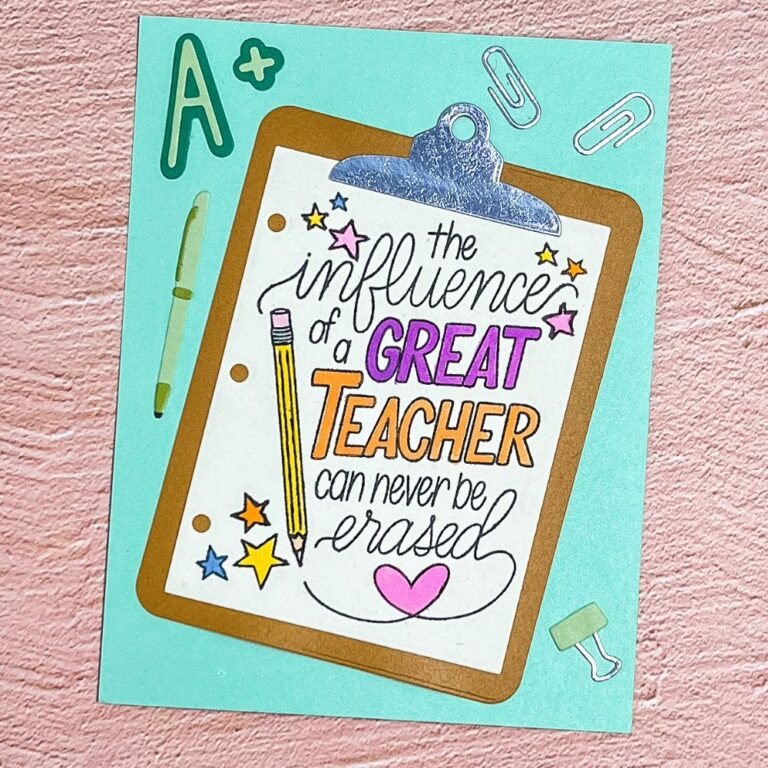 A+
the
influence
of a GREAT
TEACHER
can never be
erased